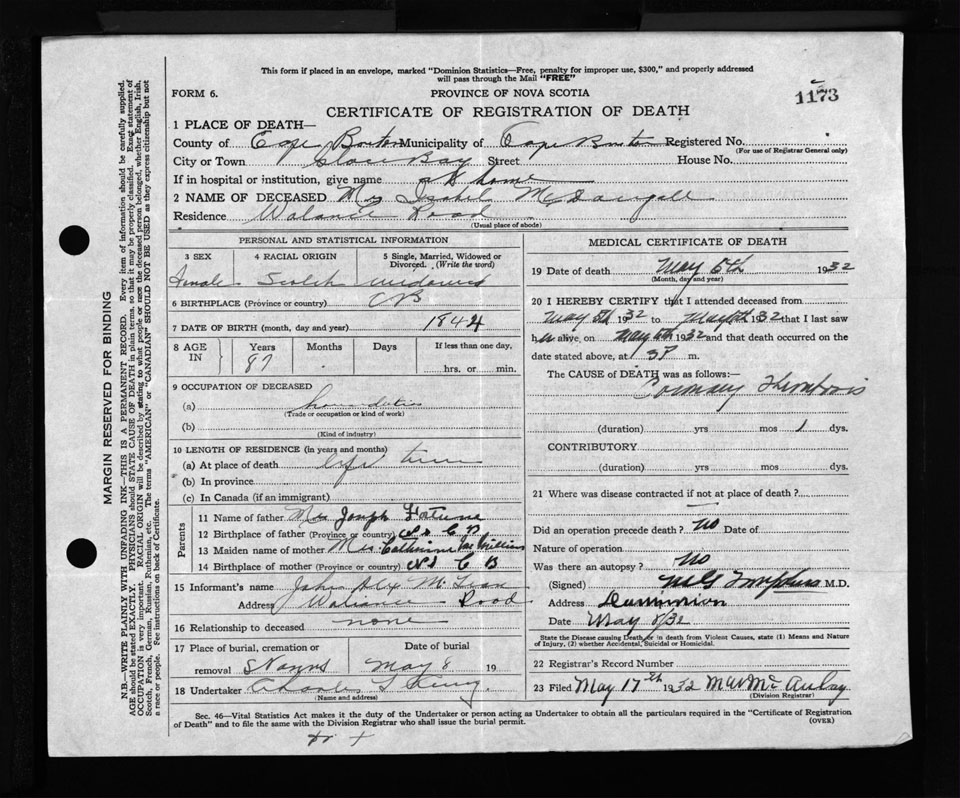 This form if placed in an envelope, marked "Dominion Statistics—Free, penalty for improper use, $300," and properly addressed
will pass through the Mail "FREE"
FORM 6.
PROVINCE OF NOVA SCOTIA
1173
CERTIFICATE OF REGISTRATION OF DEATH
1 PLACE OF DEATH—
County of Cape Breton Municipality of Cape Breton Registered No.
(For use of Registrar General only)
City or Town Glace Bay Street House No.
If in hospital or institution, give name at home
2 NAME OF DECEASED Mrs Isabel McDougall
Residence Road
(Usual place of abode)
PERSONAL AND STATISTICAL INFORMATION
3 SEX
4 RACIAL ORIGIN
5 Single, Married, Widowed or Divorced. (Write the word)
Female Scotch widowed
6 BIRTHPLACE (Province or country) CB
7 DATE OF BIRTH (month, day and year) 1844
8 AGE IN
Years Months Days If less than one day,
87
hrs. or min.
9 OCCUPATION OF DECEASED
(a)
(Trade or occupation or kind of work)
(b)
(Kind of industry)
10 LENGTH OF RESIDENCE (in years and months)
(a) At place of death life time
(b) In province
(c) In Canada (if an immigrant)
Parents
11 Name of father Mr Joseph
12 Birthplace of father (Province or country) C B
13 Maiden name of mother Mrs Catherine
14 Birthplace of mother (Province or country) N S C B
15 Informant's name John Alex McLean
Address Road
16 Relationship to deceased none
17 Place of burial, cremation or removal
Date of burial
May 8 19
18 Undertaker Charles
MEDICAL CERTIFICATE OF DEATH
19 Date of death May 6th 1932
(Month, day and year)
20 I HEREBY CERTIFY that I attended deceased from
May 5th 1932 to May 6th 1932 that I last saw
her alive, on May 6th 1932 and that death occurred on the
date stated above, at P m.
The CAUSE OF DEATH was as follows:—
Coronary Thrombosis
(duration) yrs mos 1 dys.
CONTRIBUTORY
(duration) yrs. mos. dys.
21 Where was disease contracted if not at place of death?
Did an operation precede death? no Date of
Nature of operation
Was there an autopsy? no
(Signed) M.D.
Address Dominion
Date May 8/32
State the Disease causing Death, or in death from Violent Causes, state (1) Means and Nature of Injury, (2) whether Accidental, Suicidal or Homicidal.
22 Registrar's Record Number
23 Filed May 17th 1932
(Division Registrar)
Sec. 46—Vital Statistics Act makes it the duty of the Undertaker or person acting as Undertaker to obtain all the particulars required in the "Certificate of Registration
of Death" and to file the same with the Division Registrar who shall issue the burial permit.
(OVER)
MARGIN RESERVED FOR BINDING
N.B.—WRITE PLAINLY WITH UNFADING INK—THIS IS A PERMANENT RECORD. Every item of information should be carefully supplied.
AGE should be stated EXACTLY. PHYSICIANS should STATE CAUSE OF DEATH in plain terms, so that it may be properly classified. Exact statement of
OCCUPATION is very important. RACIAL ORIGIN will be described by stating to what people or race the deceased person belonged, whether English, Irish,
Scotch, French, German, Russian, Ruthenian, etc. The terms "AMERICAN" or "CANADIAN" SHOULD NOT BE USED as they express citizenship but not
a race or people. Fee instructions on back of Certificate.